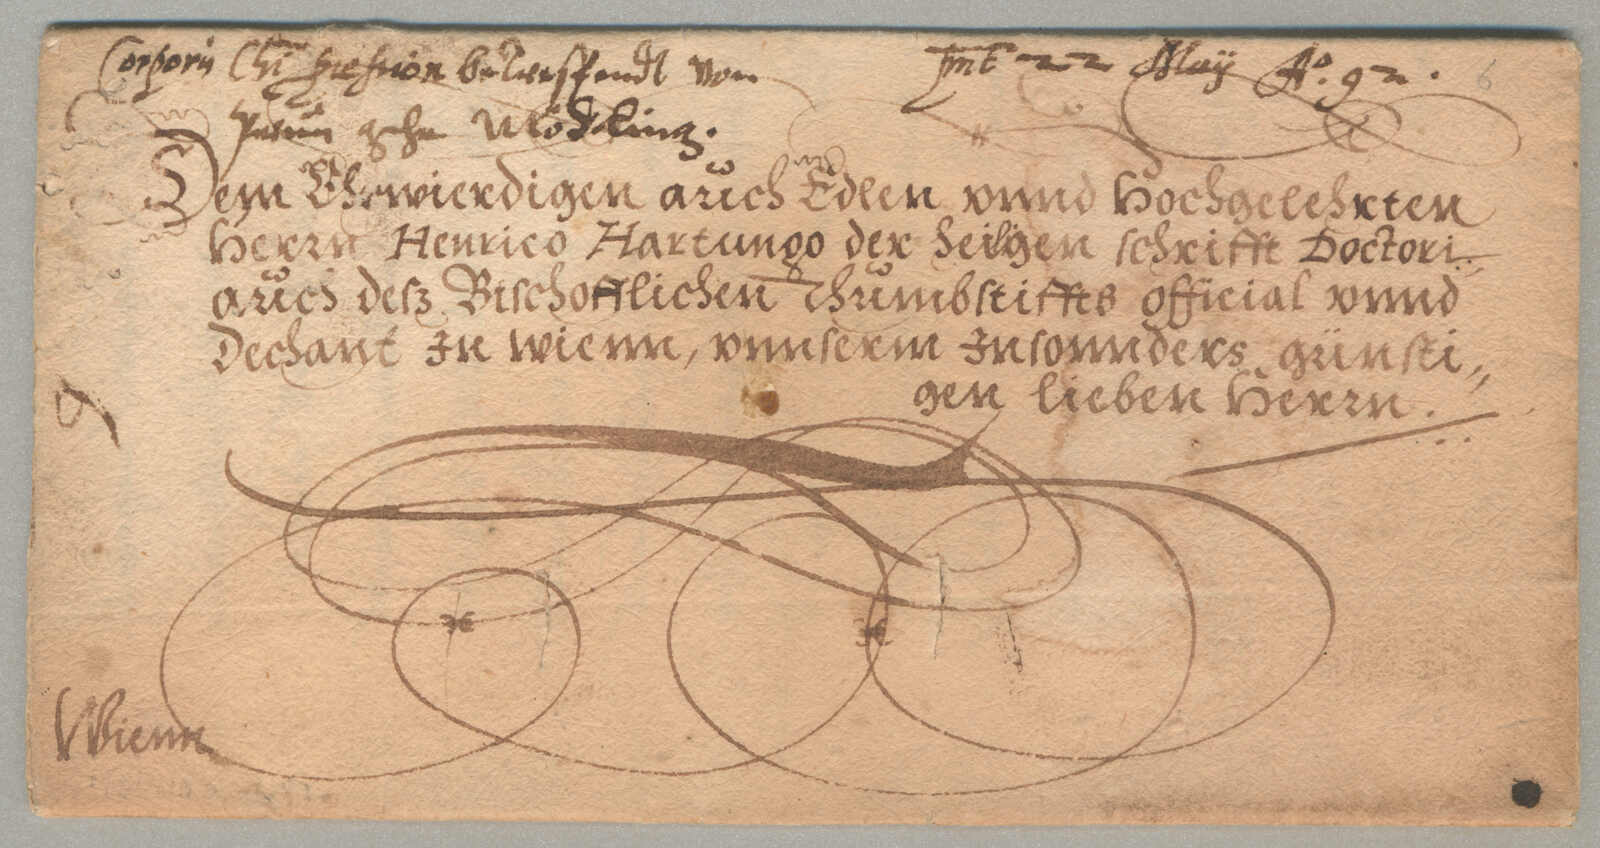 Corporis Chi betreffendt von
pnt 22 May Aº. 92.
gehn Mödling.
Dem Ehrwierdigen auch Edlen vnnd Hochgelehrten
Herrn Henrico Hartungo der heiligen schrifft Doctori
auch desz Bischofflichen Thumbstiffts official vnnd
Dechant In Wienn, vnnserm Insonnders günsti„
gen lieben Herrn.
Wienn